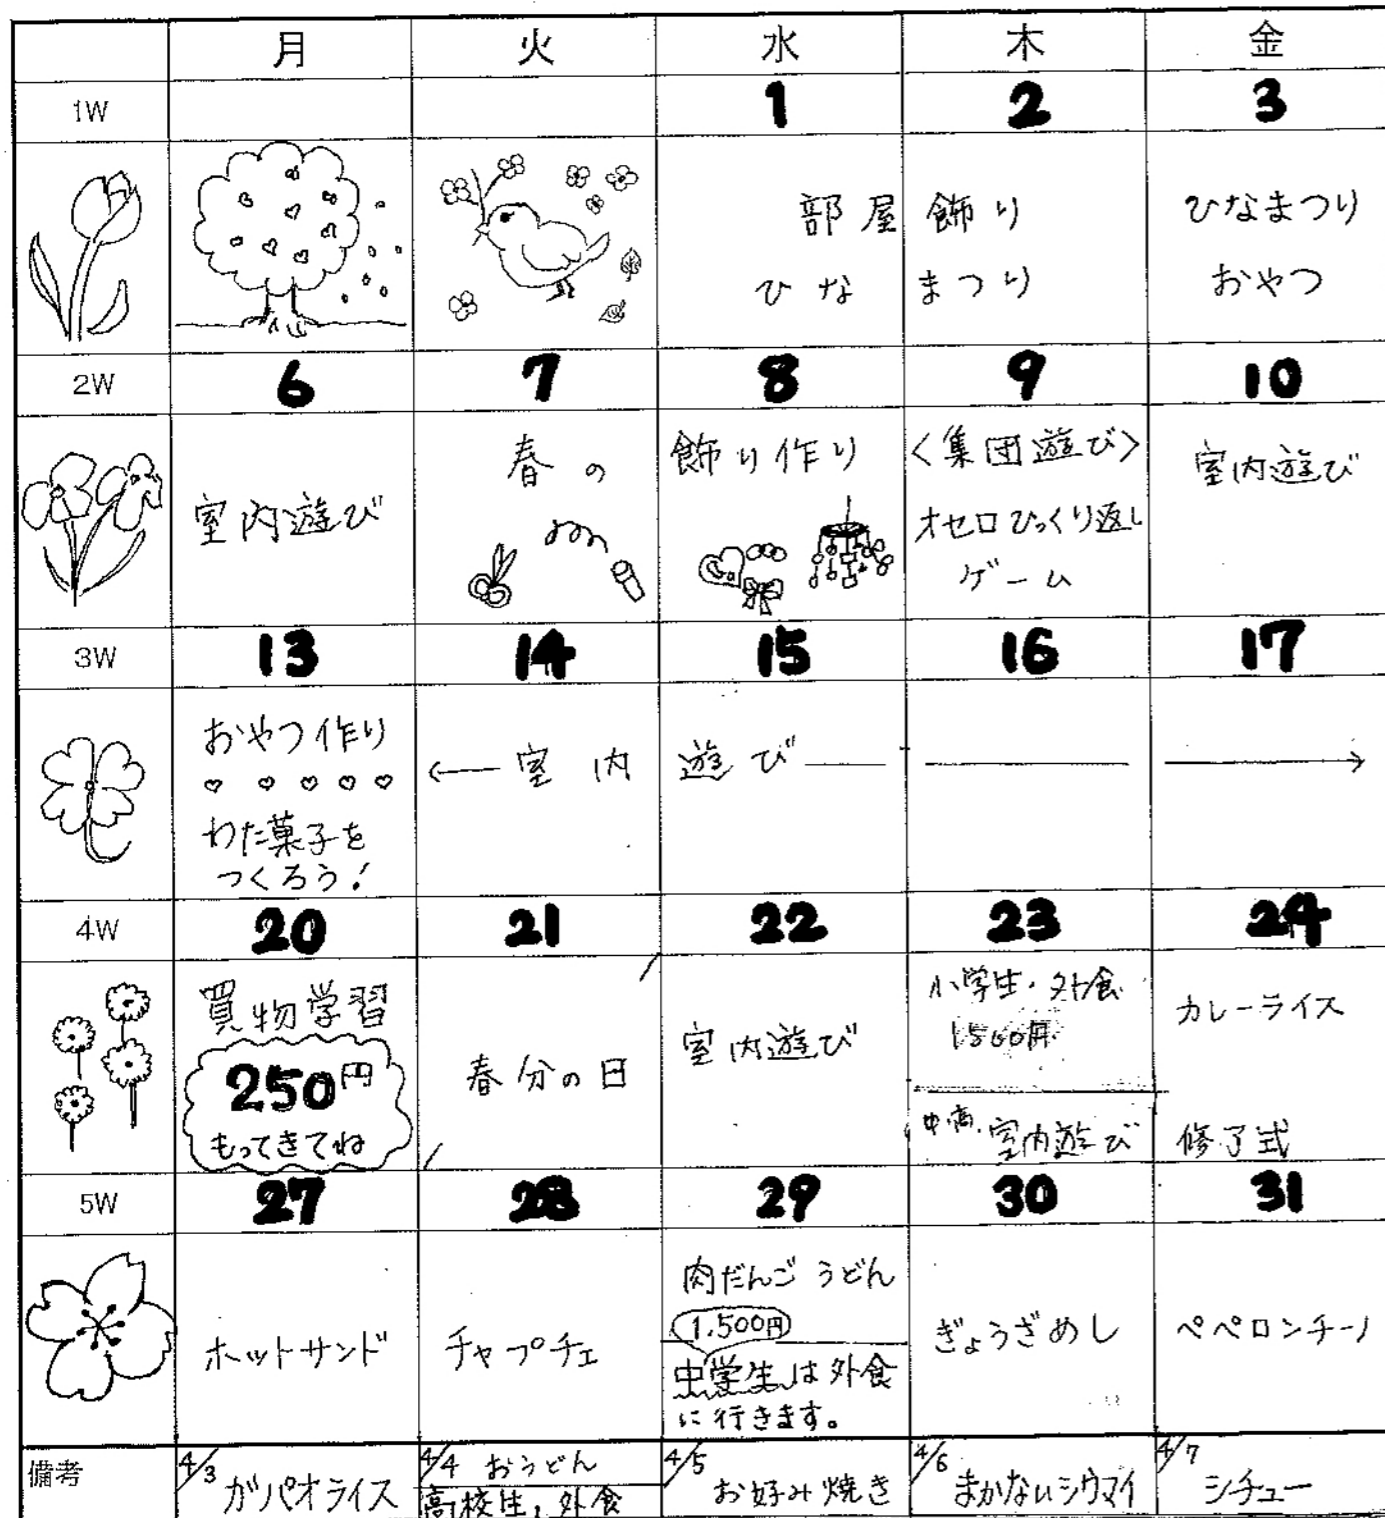 月 火 水 木 金
1W 1 2 3
部屋飾り
ひなまつり
ひなまつり
おやつ
2W 6 7 8 9 10
室内遊び
春の飾り作り
〈集団遊び〉
オセロひっくり返し
ゲーム
室内遊び
3W 13 14 15 16 17
おやつ作り
♡ ♡ ♡ ♡ ♡
わた菓子を
つくろう!
←室内遊び→
4W 20 21 22 23 24
買物学習
250円
もってきてね
春分の日
室内遊び
小学生・外食
1500円
中高、室内遊び
カレーライス
修了式
5W 27 28 29 30 31
ホットサンド
チャプチェ
肉だんごうどん
1,500円
中学生は外食
に行きます。
ぎょうざめし
ペペロンチーノ
備考
4/3 ガパオライス
4/4 おうどん
高校生、外食
4/5 お好み焼き
4/6 まかないシウマイ
4/7 シチュー